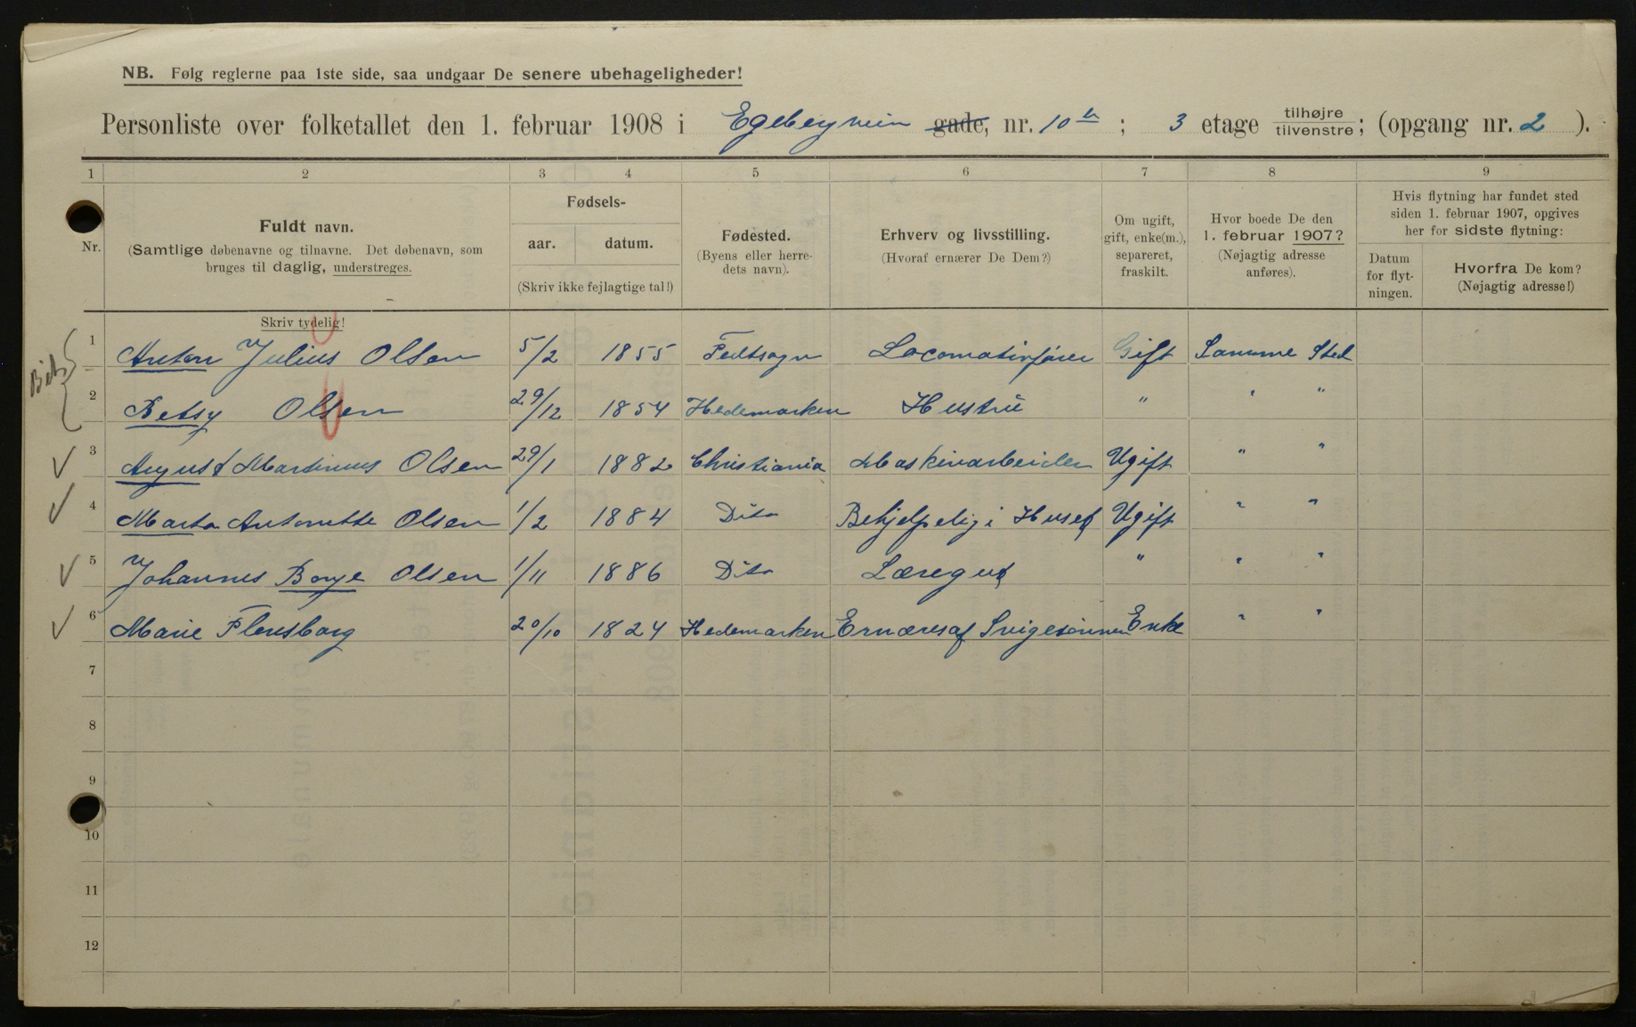 NB. Følg reglerne paa 1ste side, saa undgaar De senere ubehageligheder!
Personliste over folketallet den 1. februar 1908 i Egebergvein gade, nr. 10 b ; 3 etage tilhøjre tilvenstre; (opgang nr. 2 ).
1 2 3 4 5 6 7 8 9
Nr.
Fuldt navn.
(Samtlige døbenavne og tilnavne. Det døbenavn, som
bruges til daglig, understreges.
Skriv tydelig!
Fødsels-
aar. datum.
(Skriv ikke fejlagtige tal!)
Fødested.
(Byens eller herre-
dets navn).
Erhverv og livsstilling.
(Hvoraf ernærer De Dem?)
Om ugift,
gift, enke(m.),
separeret,
fraskilt.
Hvor boede De den
1. februar 1907?
(Nøjagtig adresse
anføres).
Hvis flytning har fundet sted
siden 1. februar 1907, opgives
her for sidste flytning:
Datum
for flyt-
ningen.
Hvorfra De kom?
(Nøjagtig adresse!)
1 Anton Julius Olsen 5/2 1855 Locomotivfører Gift Samme Sted
2 Betsy Olsen 29/12 1854 Hedemarken Hustru " " "
3 August Martinius Olsen 29/1 1882 Christiania Maskinarbeider Ugift " "
4 Marta Antonette Olsen 1/2 1884 Dito Behjelpelig i Huset Ugift " "
5 Johannes Borge Olsen 1/11 1886 Dito Læregut " " "
6 Marie Flensborg 20/10 1824 Hedemarken Ernæres af Svigesønnen Enke " "
7
8
9
10
11
12